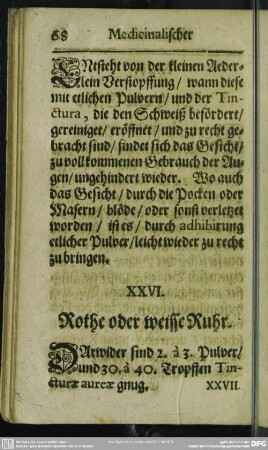 68 Medicinalischer
ENtsteht von der kleinen Aeder-
lein Verstopffung / wann diese
mit etlichen Pulvern / und der Tin-
ctura, die den Schweiß befördert /
gereiniget / eröffnet / und zu recht ge-
bracht sind / findet sich das Gesicht /
zu vollkommenen Gebrauch der Au-
gen / ungehindert wieder. Wo auch
das Gesicht / durch die Pocken oder
Masern / blöde / oder sonst verletzet
worden / ist es / durch adhibirung
etlicher Pulver / leicht wieder zu recht
zu bringen.
XXVI.
Rothe oder weisse Ruhr.
DArwider sind 2. à 3. Pulver /
und 30. à 40. Tropffen Tin-
cturæ aureæ gnug. XXVII.